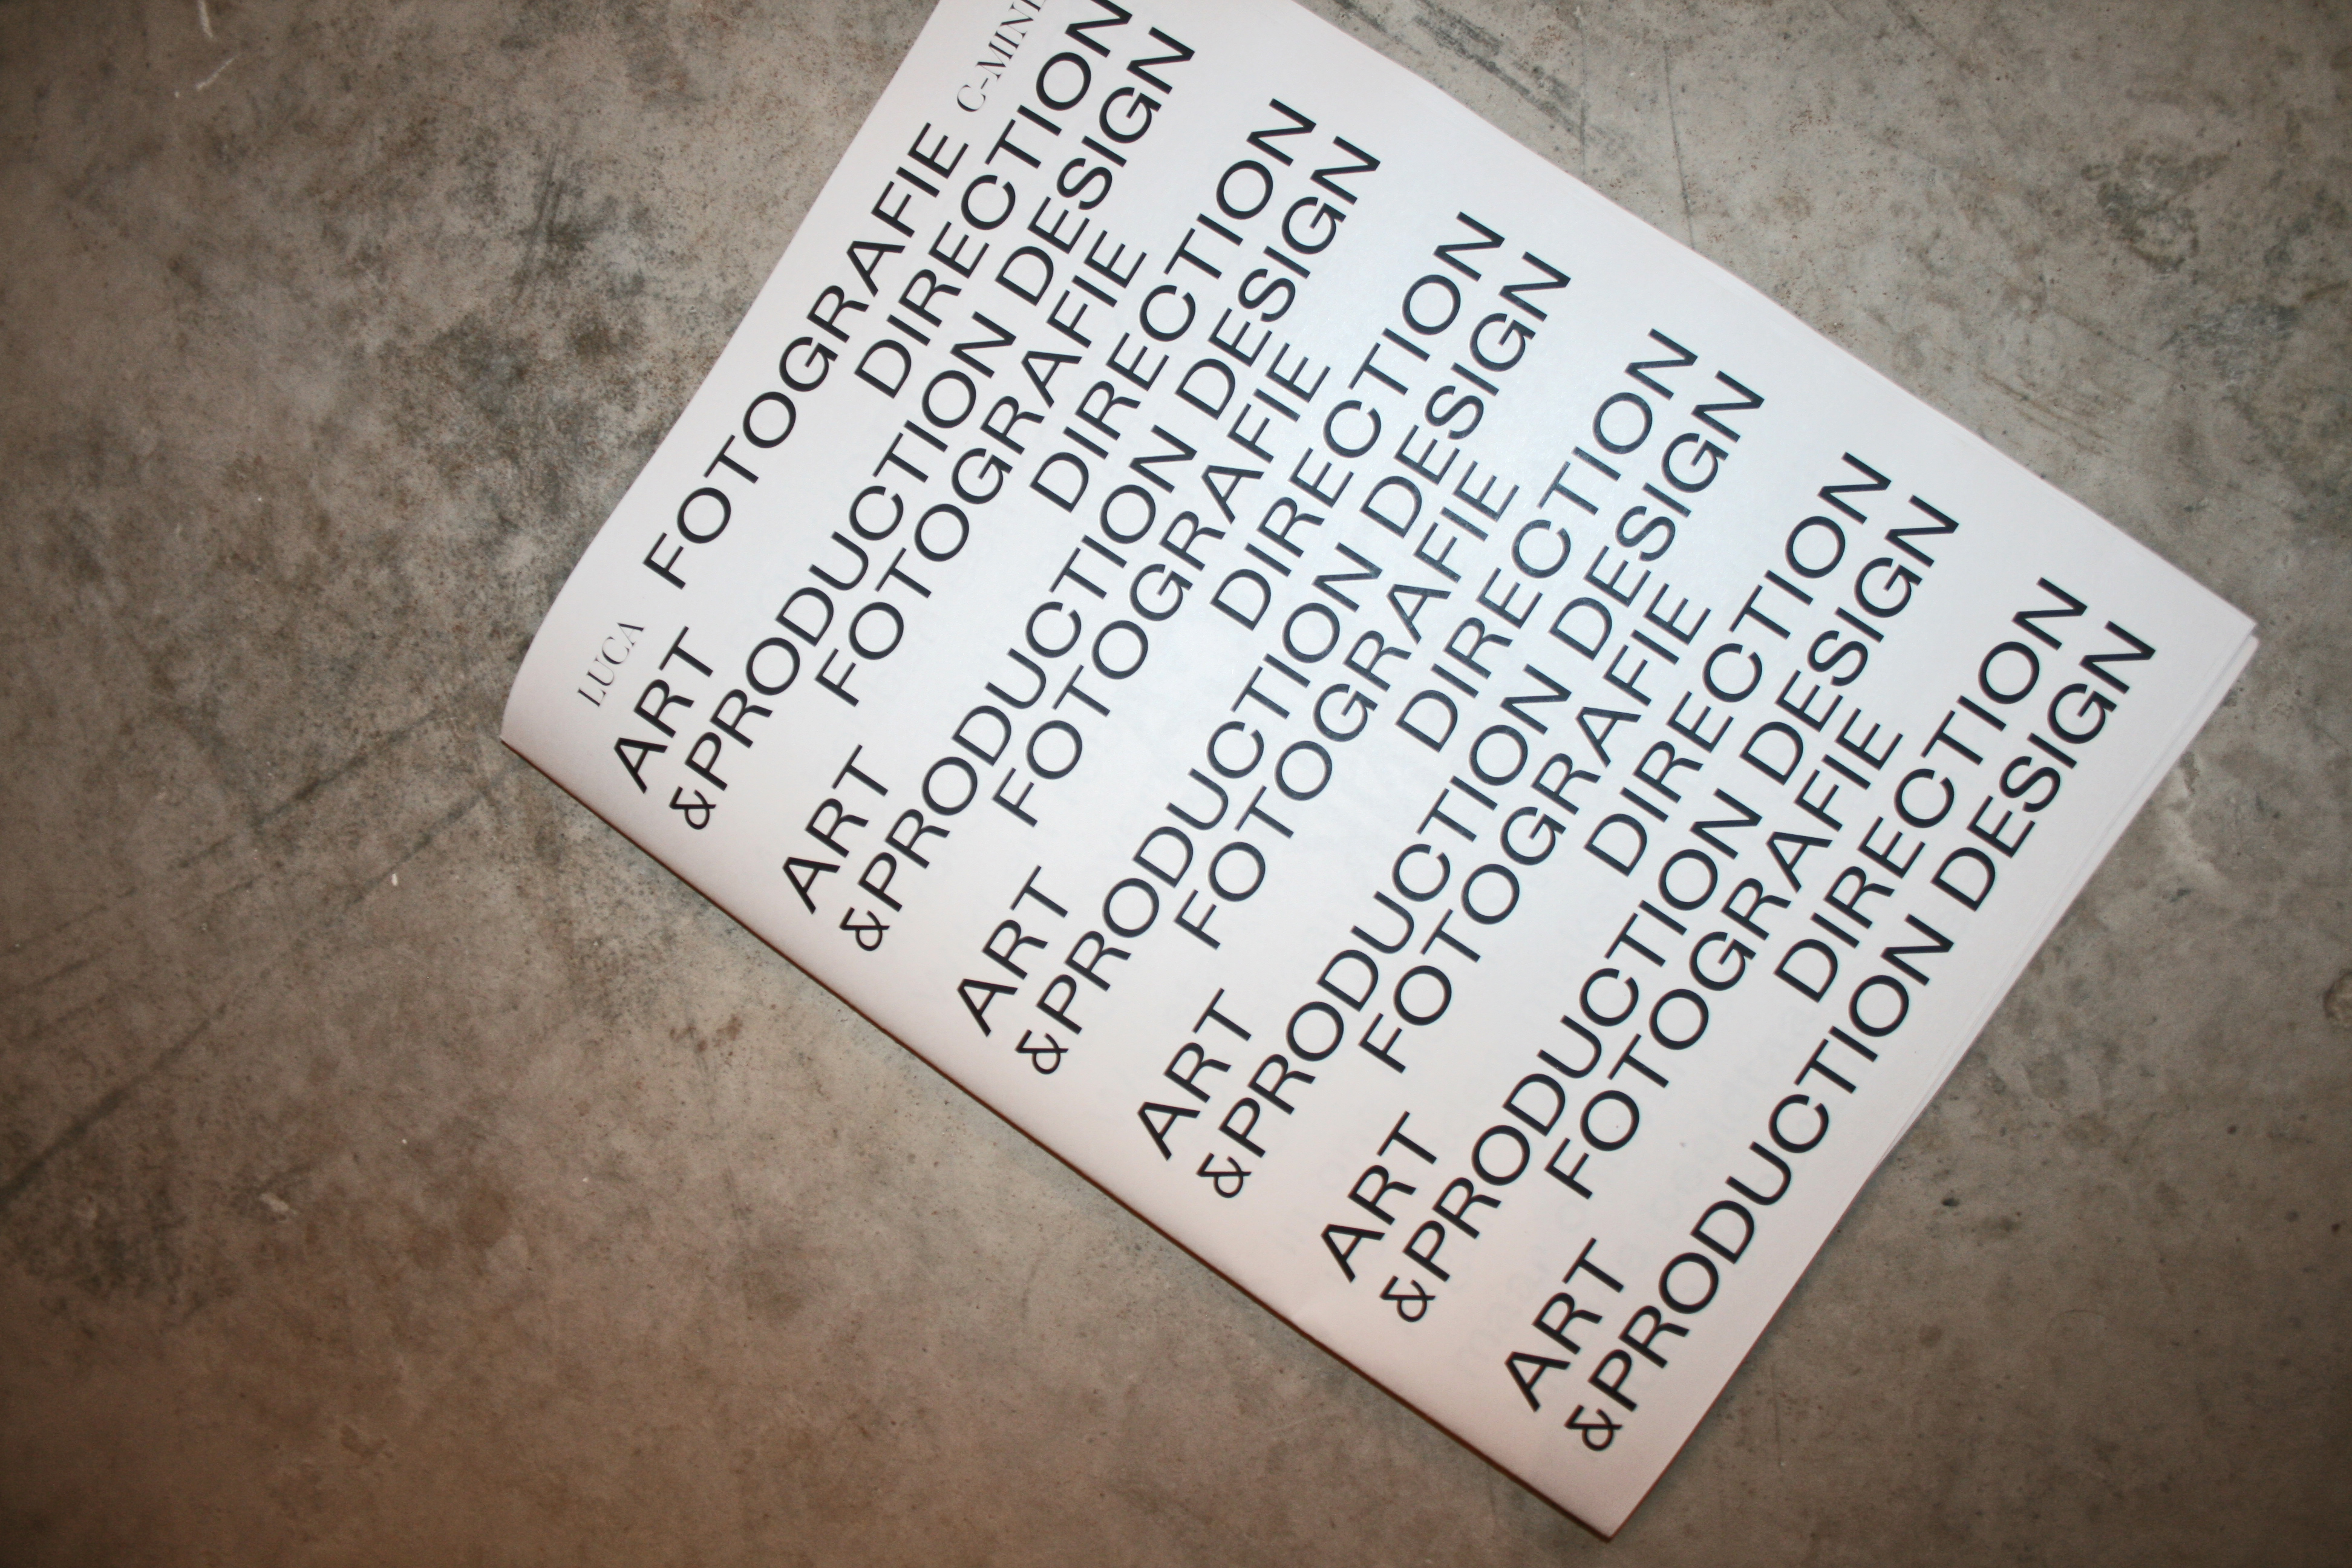 LUCA FOTOGRAFIE C-MINE
ART DIRECTION
&PRODUCTION DESIGN
FOTOGRAFIE
ART DIRECTION
&PRODUCTION DESIGN
FOTOGRAFIE
ART DIRECTION
&PRODUCTION DESIGN
FOTOGRAFIE
ART DIRECTION
&PRODUCTION DESIGN
FOTOGRAFIE
ART DIRECTION
&PRODUCTION DESIGN
FOTOGRAFIE
ART DIRECTION
&PRODUCTION DESIGN